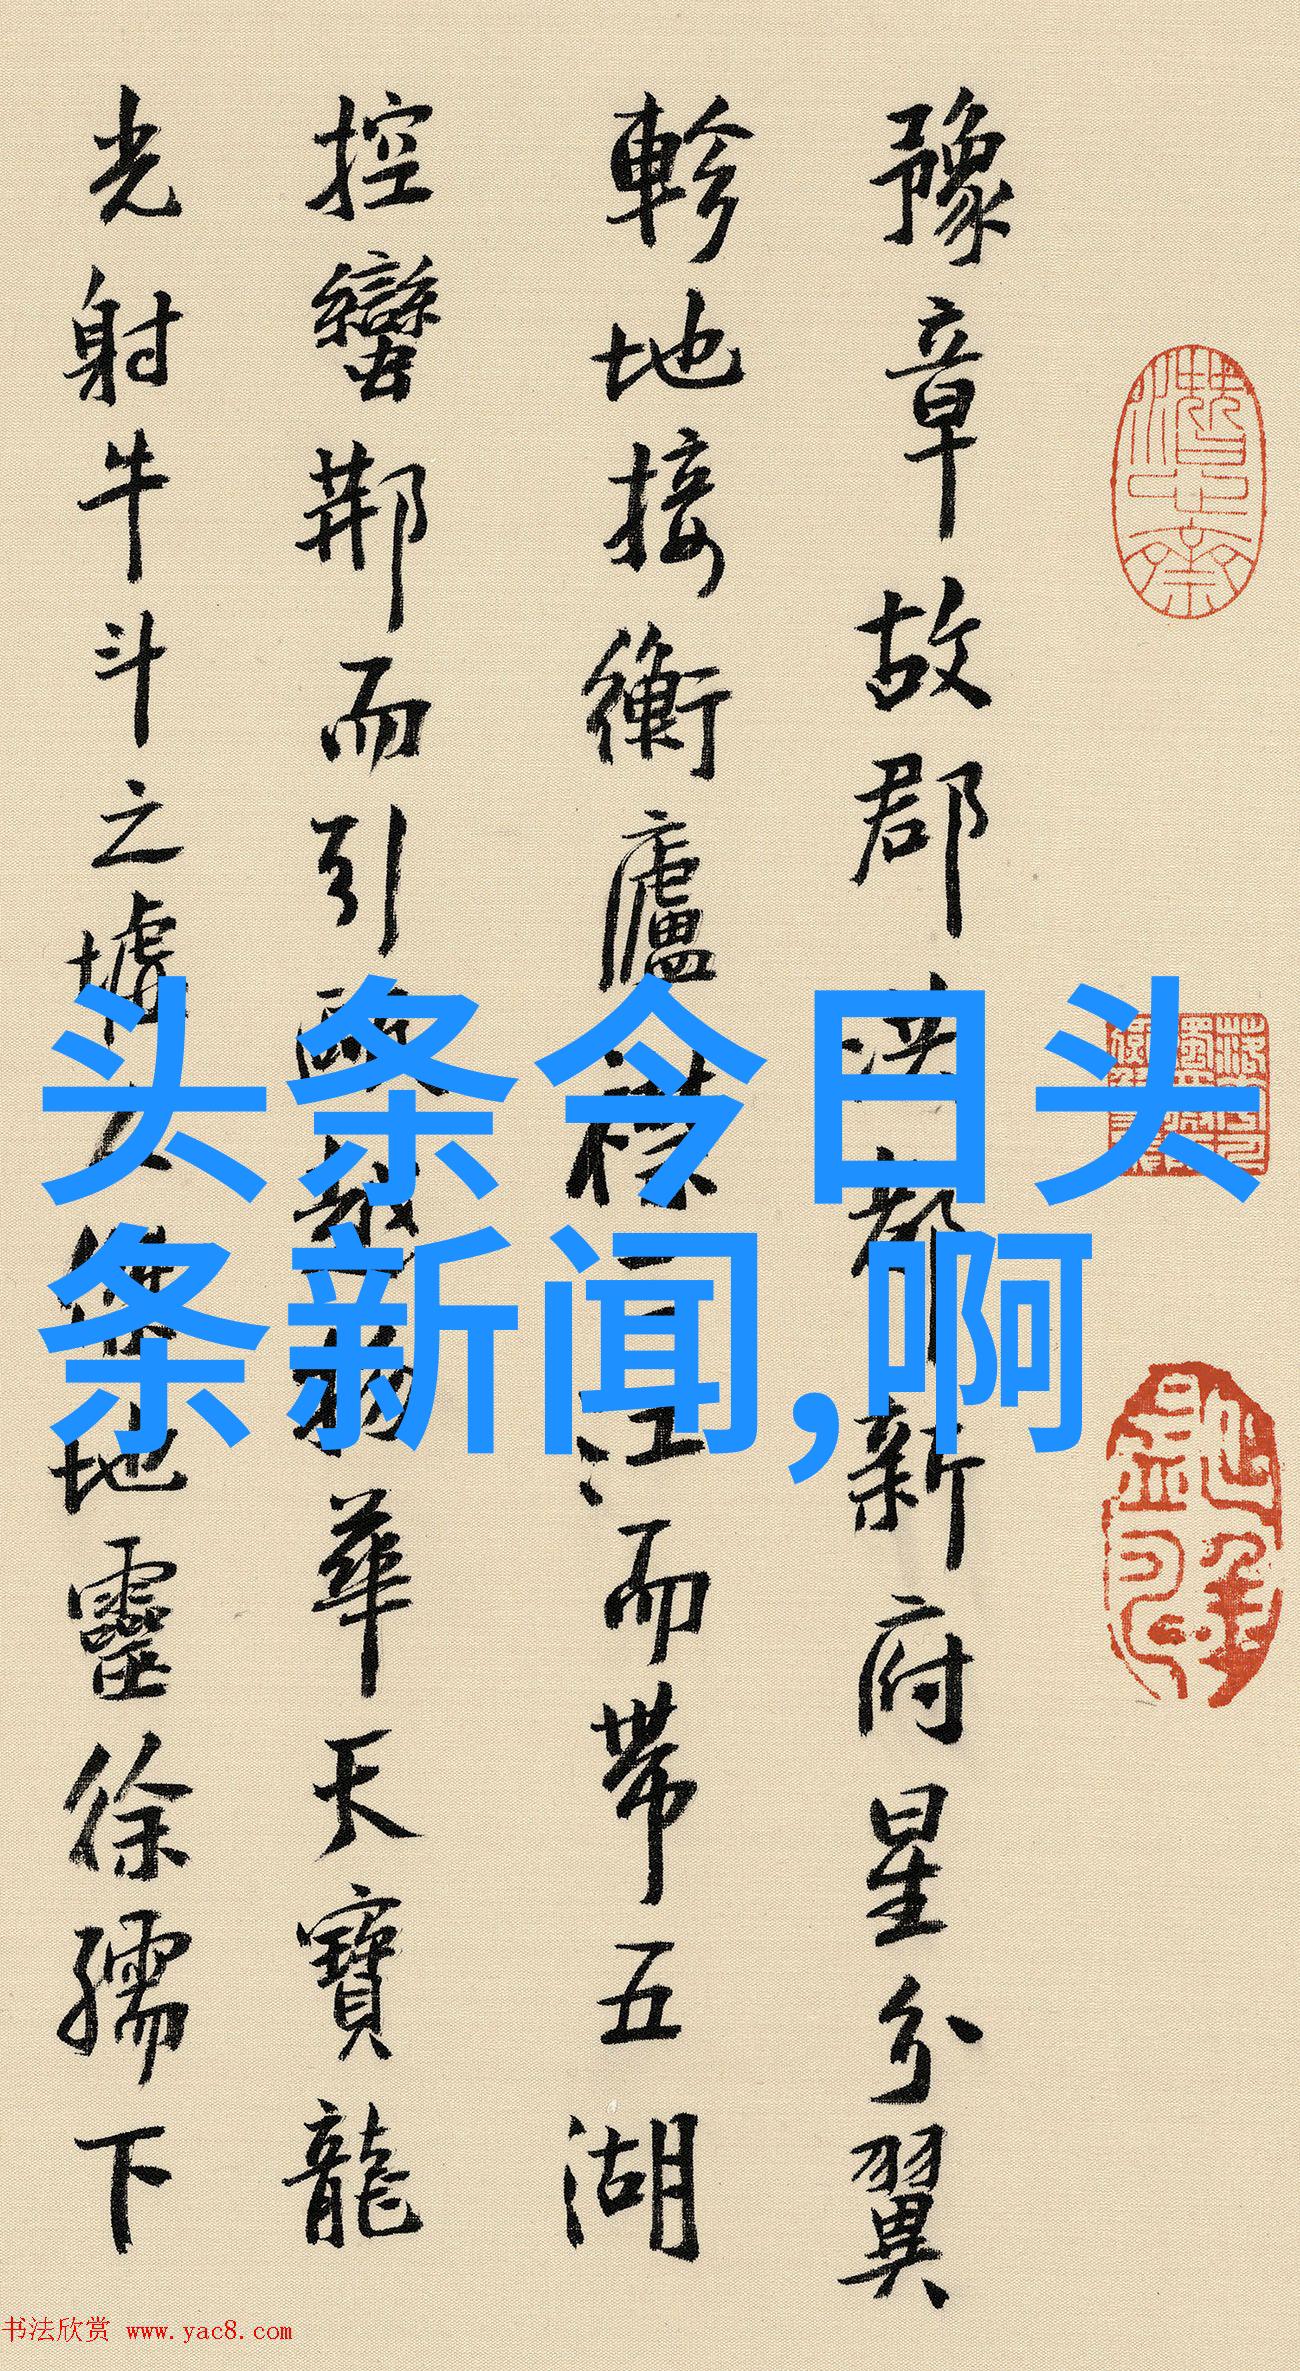 豫章故郡洪都新府星分翼
軫地接衡廬襟三江而帶五湖
控蠻荆而引甌越物華天寶龍
光射牛斗之墟人傑地靈徐孺下
头条今日头
条新闻,啊
书法欣赏 www.yac8.com